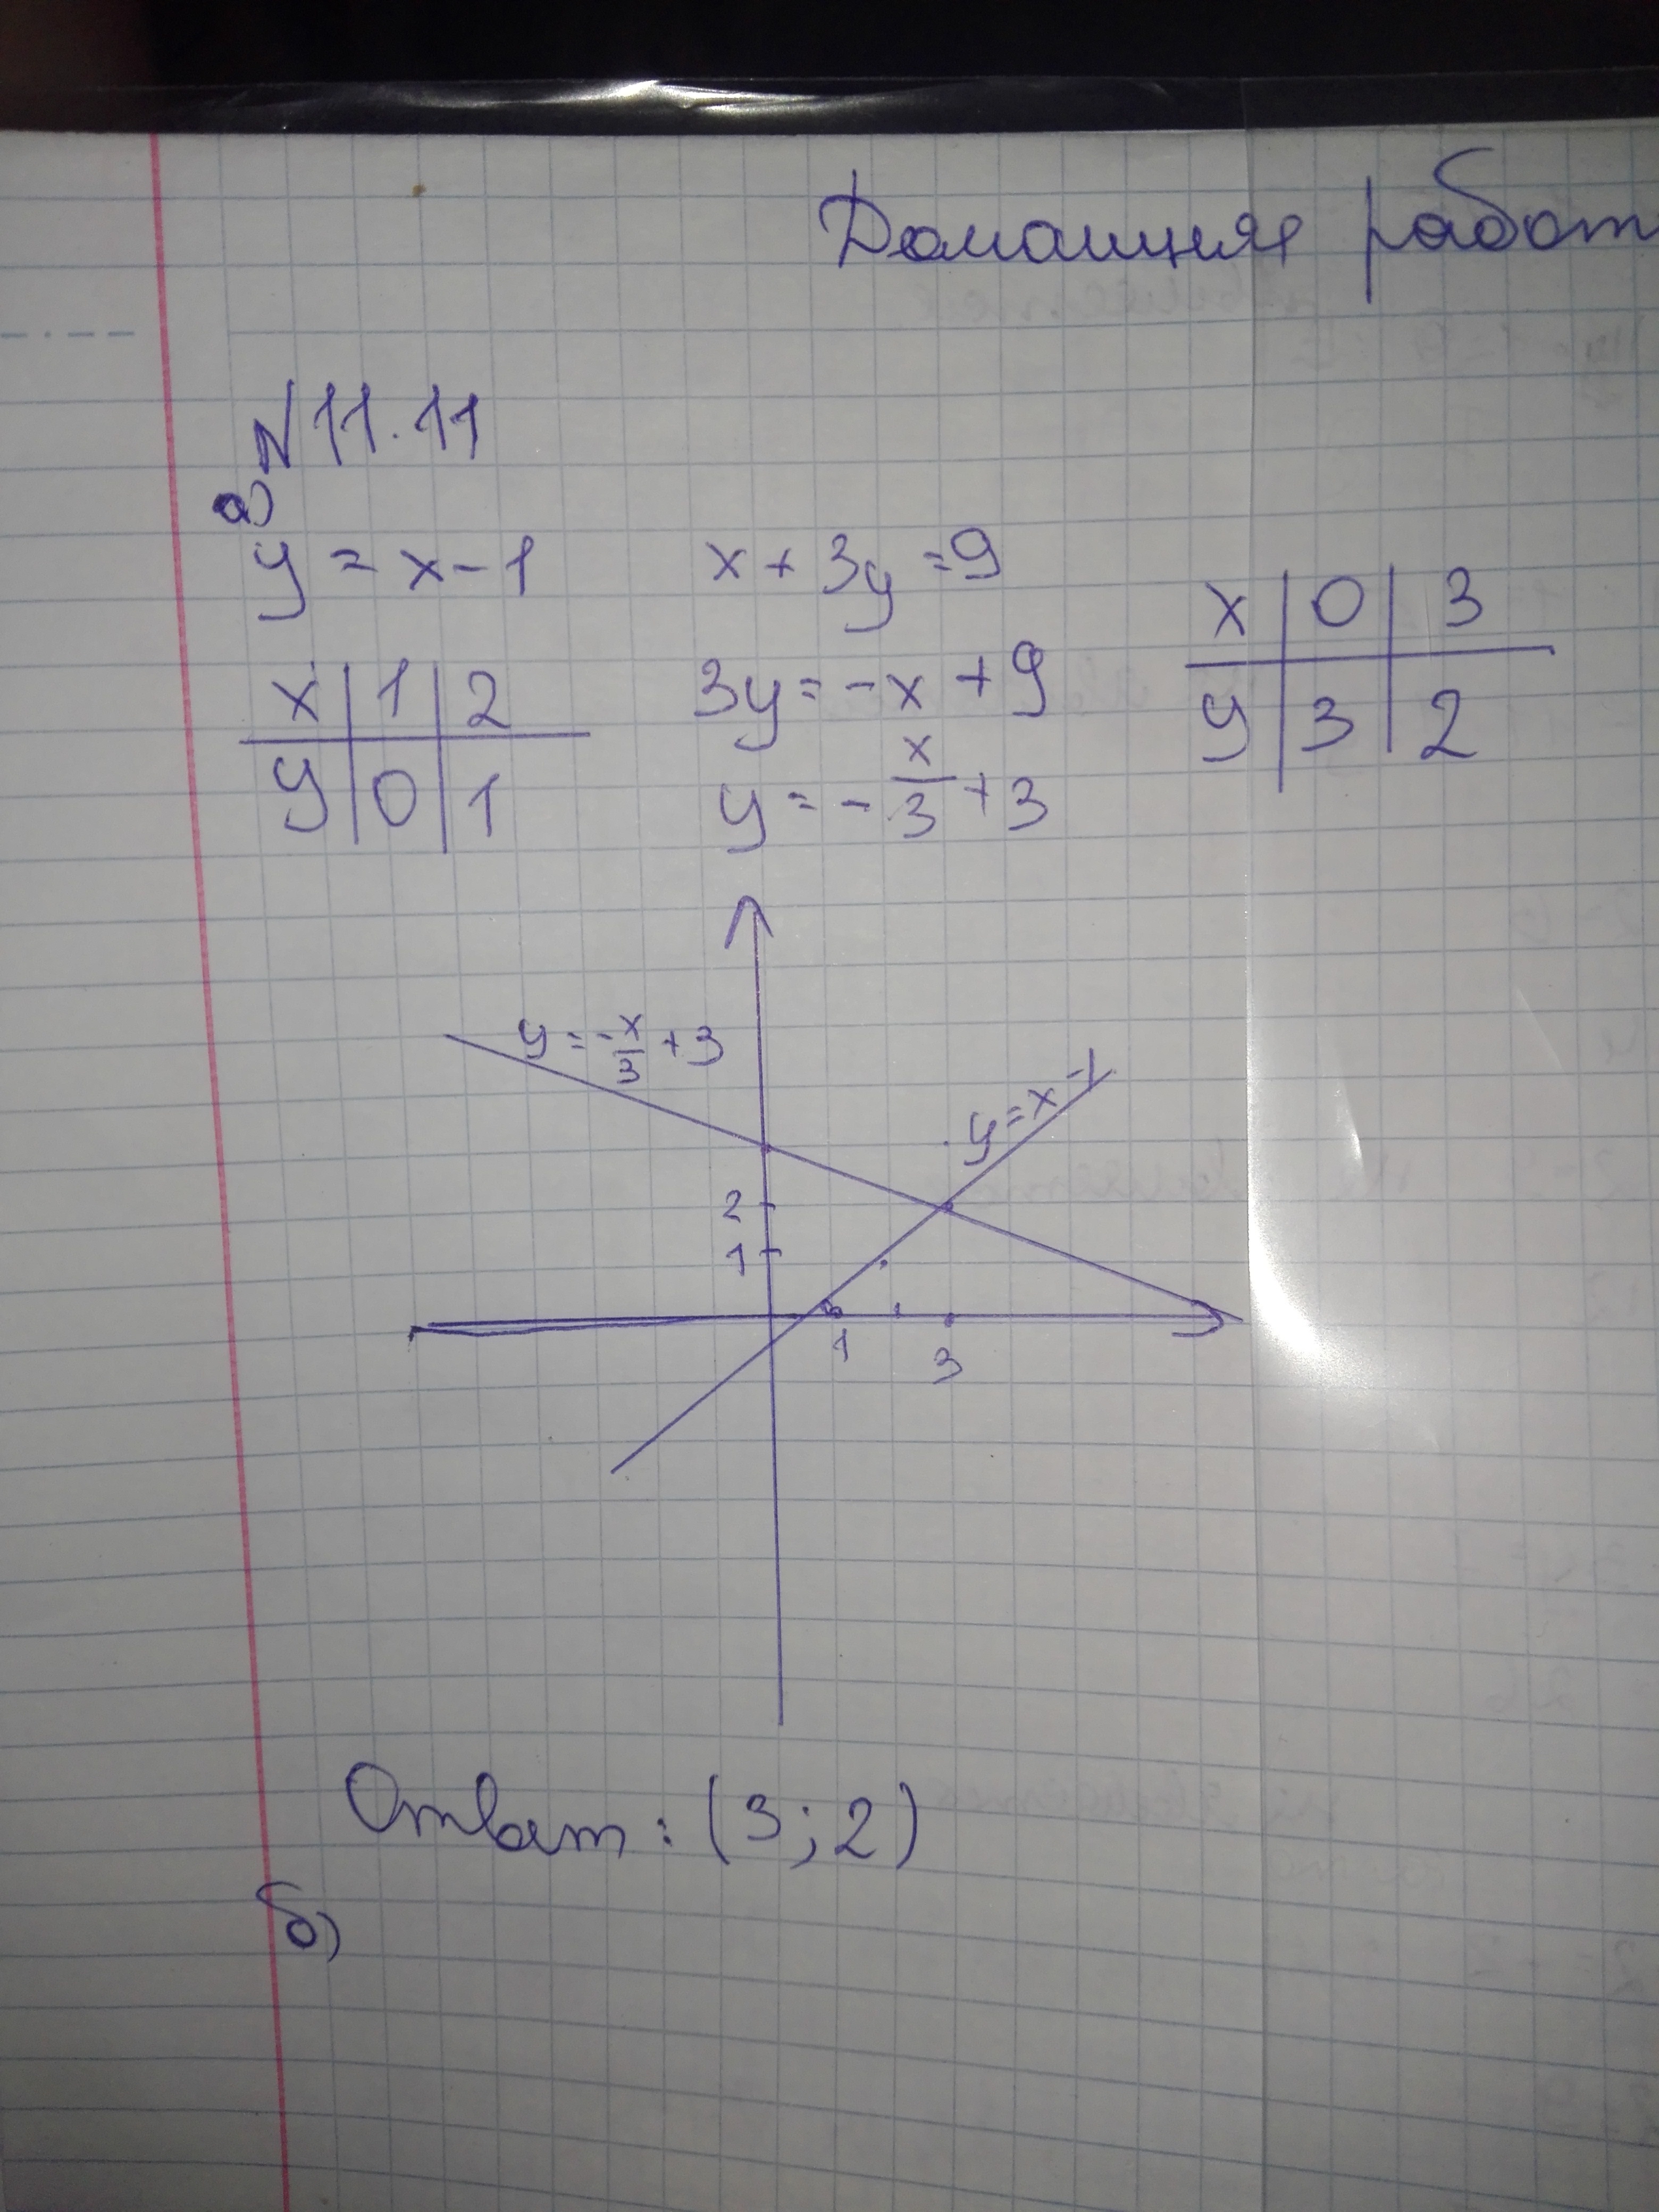 Домашняя работ
N 11.11
а)
y = x - 1
x + 3y = 9
x | 0 | 3
y | 3 | 2
x | 1 | 2
y | 0 | 1
3y = -x + 9
y = - x/3 + 3
y = - x/3 + 3
y = x - 1
2
1
1
3
Ответ: (3; 2)
б)